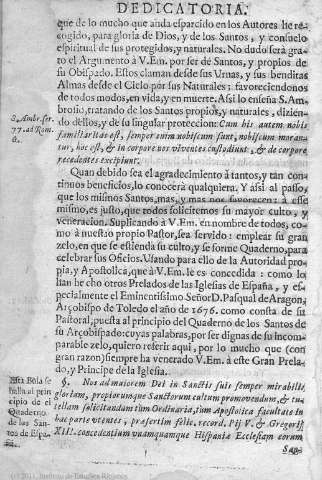 DEDICATORIA.
que de lo mucho que anda esparcido en los Autores he re-
cogido, para gloria de Dios, y de los Santos, y consuelo
espiritual de sus protegidos, y naturales. No dudo será gra-
to el Argumento à V. Em. por ser de Santos, y propios de
su Obispado. Estos claman desde sus Urnas, y sus benditas
Almas desde el Cielo por sus Naturales: favoreciendonos
de todos modos, en vida, y en muerte. Asi lo enseña S. Am-
brosio, tratando de los Santos propios, y naturales, dizien-
do dellos, y de su singular proteccion: Cum his autem nobis
familiaritas est, semper enim nobiscum sunt, nobiscum moran-
tur, hoc est, & in corpore nos viventes custodiunt, & de corpore
recedentes excipiunt.
S. Ambr. ser.
77. ad Rom.
6.
Quan debido sea el agradecimiento à tantos, y tan con-
tinuos beneficios, lo conocerà qualquiera. Y asi al passo,
que los mismos Santos, mas, y mas nos favorecen: à esse
mismo, es justo, que todos solicitemos su mayor culto, y
veneracion. Suplicando à V. Em. en nombre de todos, co-
mo à nuestro propio Pastor, sea servido: emplear su gran
zelo, en que se estienda su culto, y se forme Quaderno, para
celebrar sus Oficios. Usando para ello de la Autoridad pro-
pia, y Apostolica, que à V. Em. le es concedida: como lo
han hecho otros Prelados de las Iglesias de España, y es-
pecialmente el Eminentissimo Señor D. Pasqual de Aragon,
Arçobispo de Toledo el año de 1676. como consta de su
Pastoral, puesta al principio del Quaderno de los Santos de
su Arçobispado: cuyas palabras, por ser dignas de su incom-
parable zelo, quiero referir aqui, por lo mucho que (con
gran razon) siempre ha venerado V. Em. à este Gran Prela-
do, y Principe de la Iglesia.
Esta Bula se
halla al prin-
cipio de el
Quaderno
de los San-
tos de Espa-
§. Nos ad maiorem Dei in Sanctis suis semper mirabilis
gloriam, propiorumque Sanctorum cultum promovendum, & tu-
tellam solicitandam tum Ordinaria, tum Apostolica facultate in
hac parte utentes, præsertim felic. record. Pij V. & Gregorij
XIII. concedentium unamquamque Hispaniæ Ecclesiam eorum
San-
(c) 2011, Instituto de Estudios Riojanos